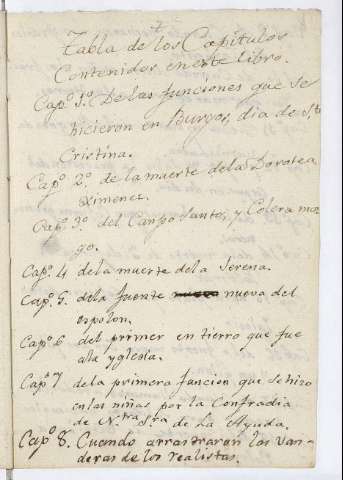 Tabla de los Capitulos
Contenidos en este libro.
Capº 1.º De las funciones que se
hicieron en Burgos, dia de Sta
Cristina.
Capº 2.º de la muerte dela Dorotea
Ximenez.
Capº 3.º del Campo Santo, y Colera mor
go.
Capº 4 dela muerte dela Serena.
Capº 5. dela fuente nueva del
espolon.
Capº 6 del primer en tierro que fue
ala yglesia.
Capº 7 dela primera funcion que se hizo
en las niñas por la Confradia
de Ntra Sra de La Ayuda.
Capº 8. Cuando arrastraron las van-
deras de los realistas.